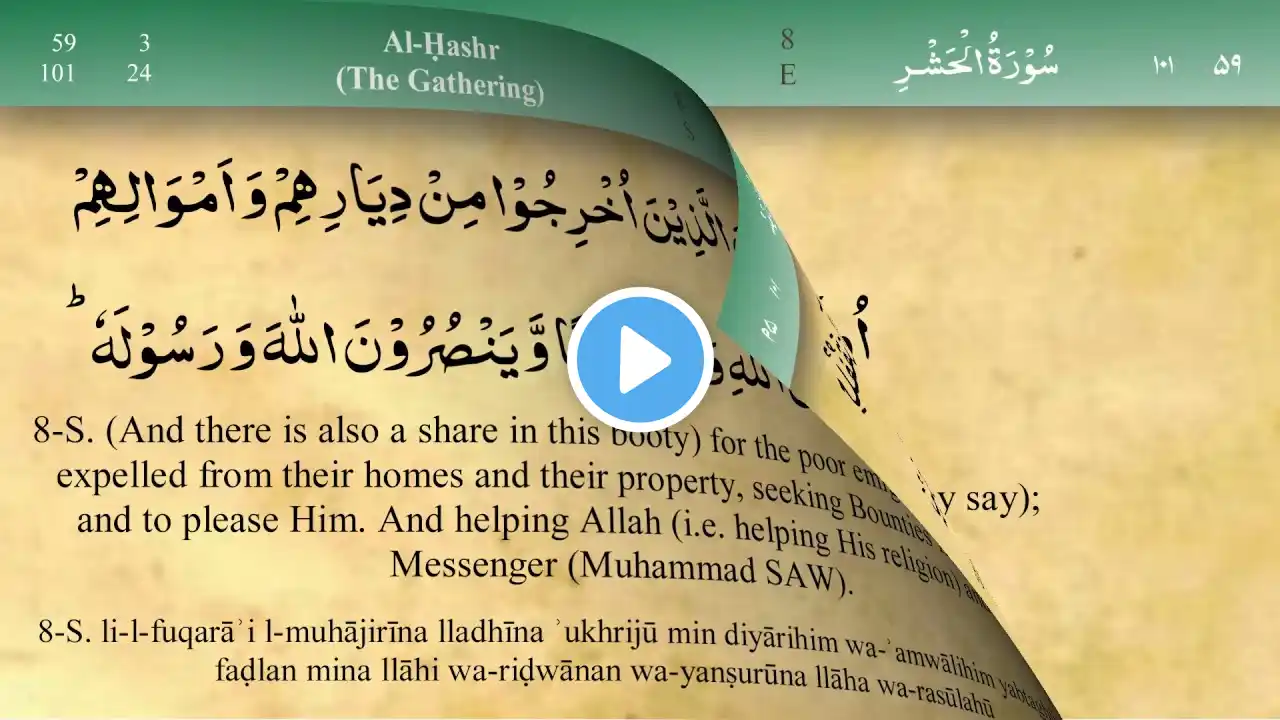 59 3
101 24
Al-Ḥashr
(The Gathering)
8
E
سُوْرَةُ الْحَشْرِ
۱۰۱ ۵۹
الَّذِيْنَ اُخْرِجُوْا مِنْ دِيَارِهِمْ وَاَمْوَالِهِمْ
اللّٰهِ وَّيَنْصُرُوْنَ اللّٰهَ وَرَسُوْلَهٗ ؕ
8-S. (And there is also a share in this booty) for the poor
expelled from their homes and their property, seeking Bounties
y say);
and to please Him. And helping Allah (i.e. helping His religion)
Messenger (Muhammad SAW).
8-S. li-l-fuqarāʾi l-muhājirīna lladhīna ʾukhrijū min diyārihim wa-ʾamwālihim
faḍlan mina llāhi wa-riḍwānan wa-yanṣurūna llāha wa-rasūlahū